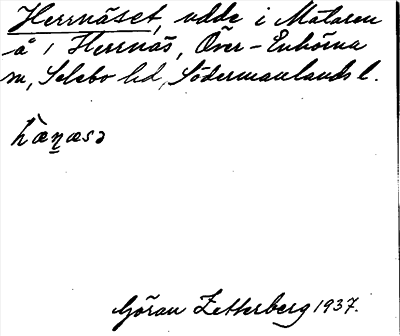 Herrnäset, udde i Mälaren
å 1 Herrnäs, Över-Enhörna
sn, Selebo hd, Södermanlands l.
hæ̀n̲æsə
Göran Zetterberg 1937.